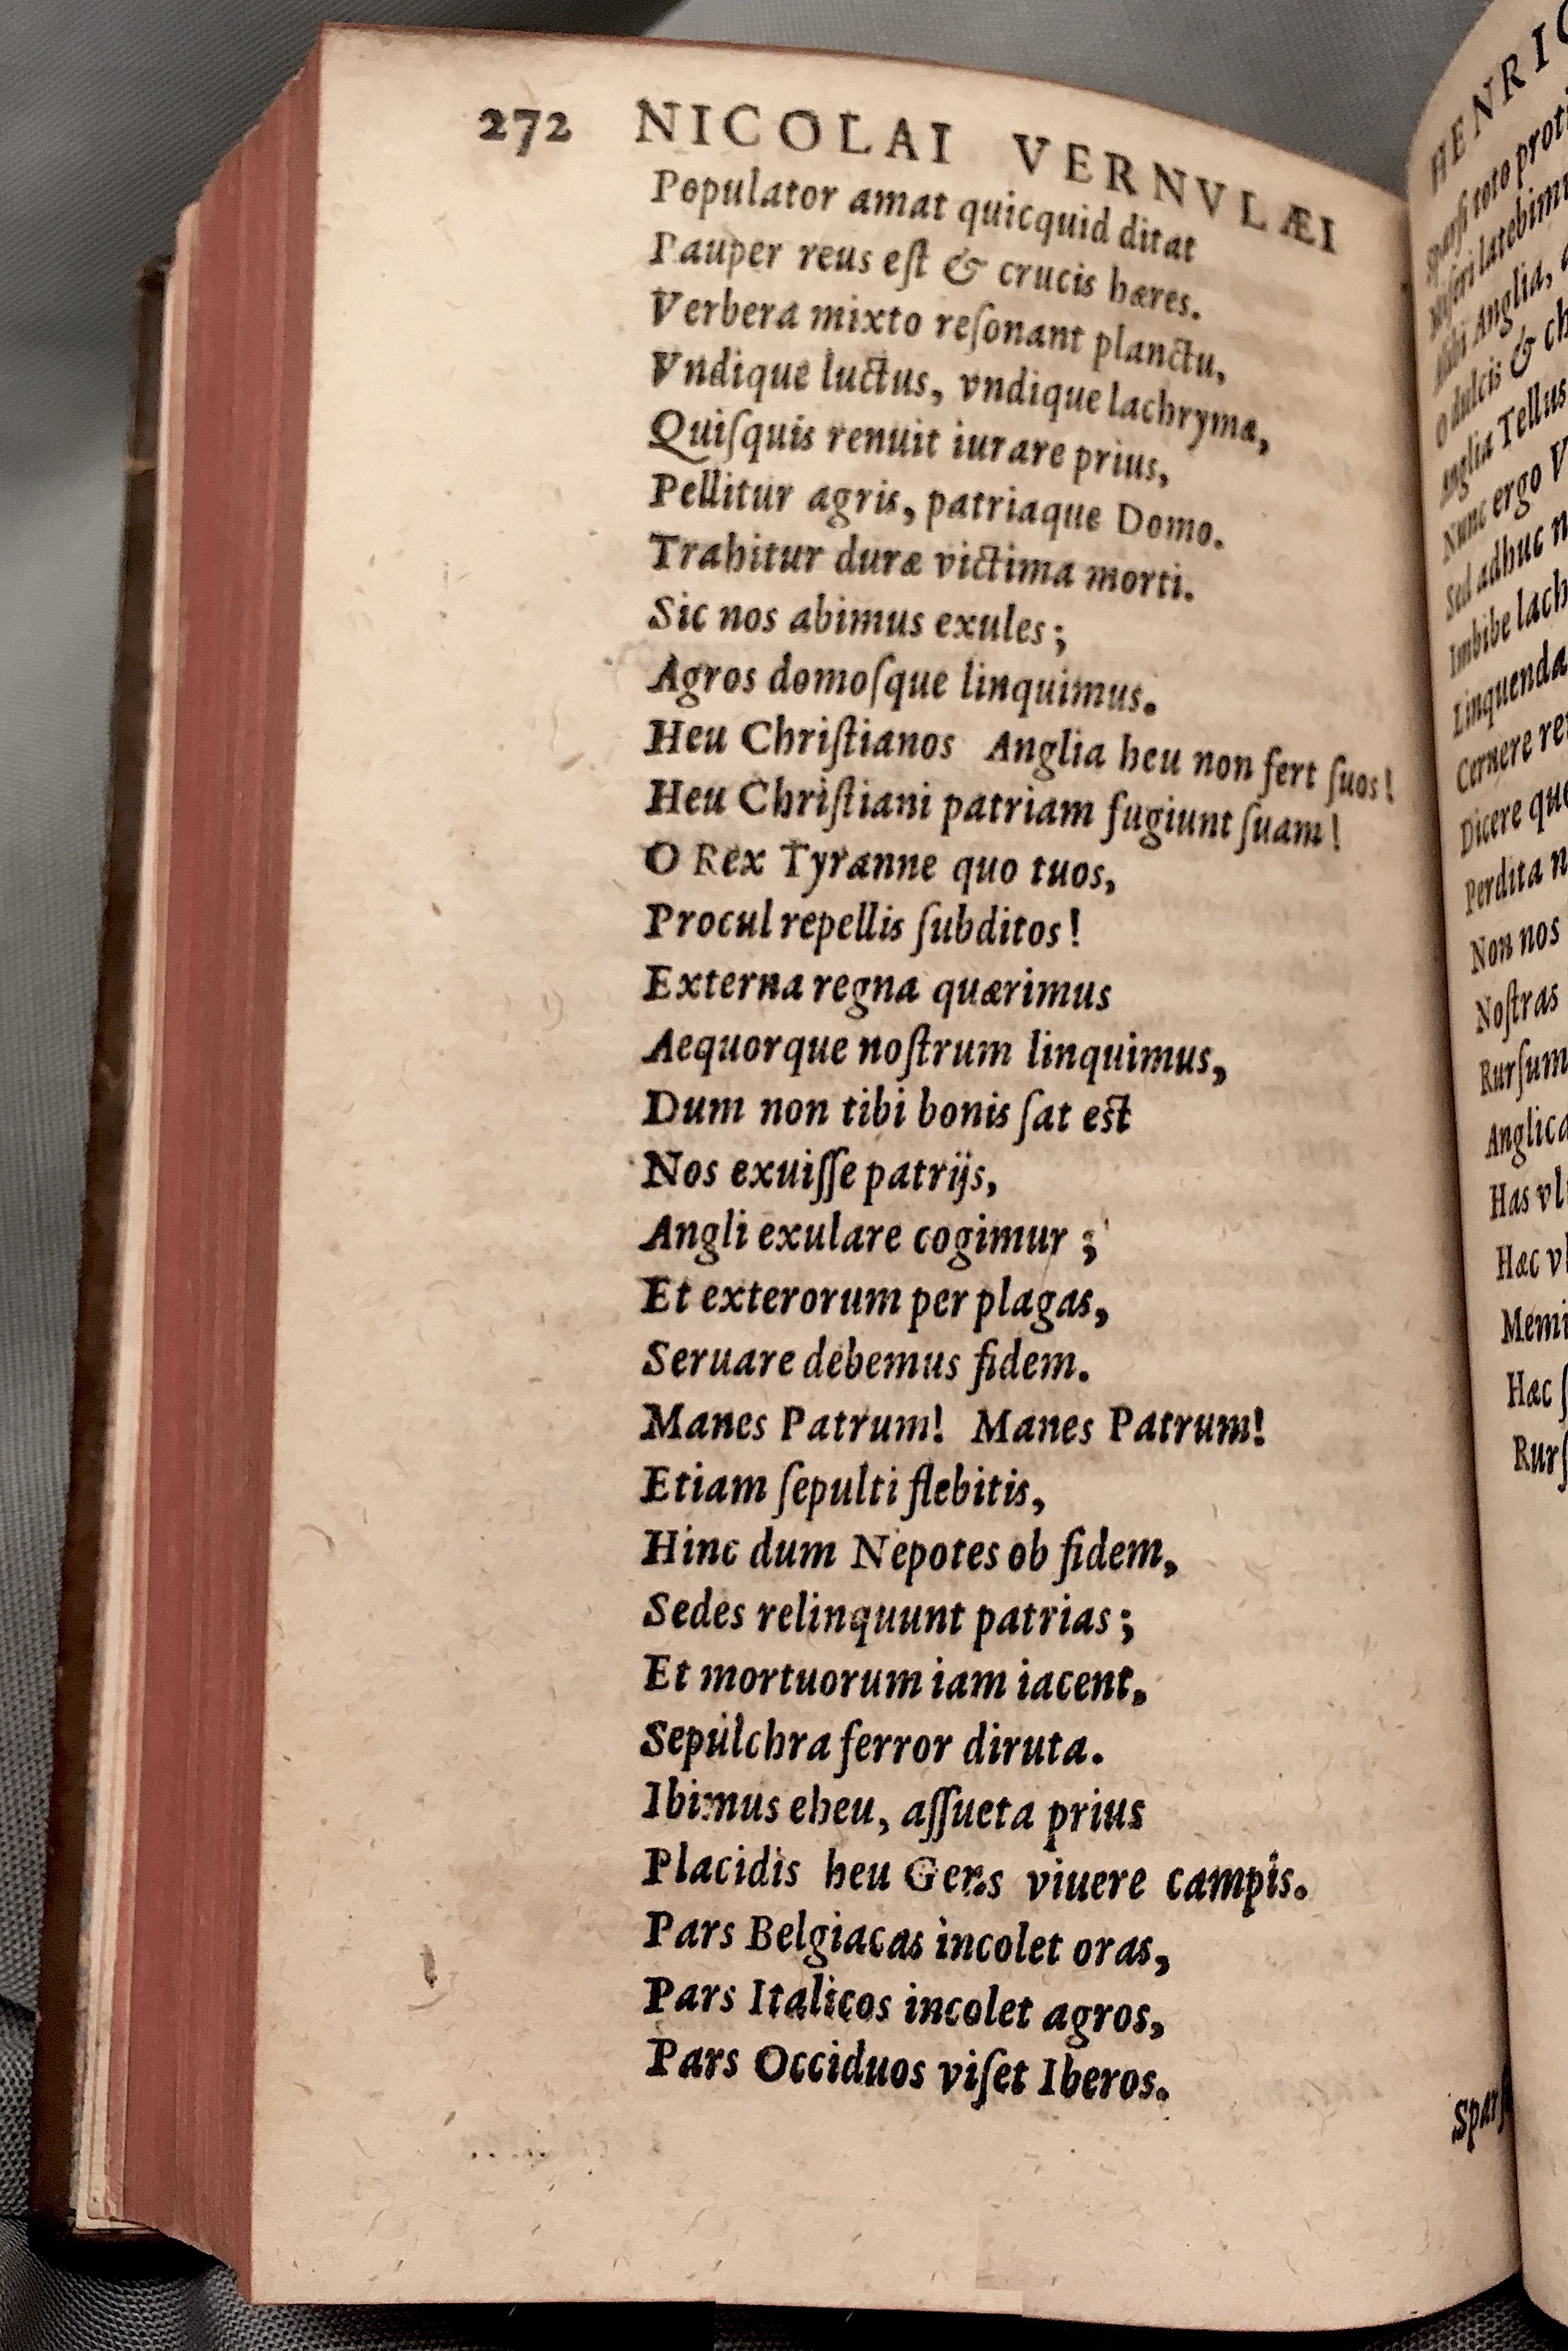 272 NICOLAI VERNVLÆI
Populator amat quicquid ditat
Pauper reus eſt & crucis hæres.
Verbera mixto reſonant planctu,
Vndique luctus, vndique lachrymæ,
Quiſquis renuit iurare prius,
Pellitur agris, patriaque Domo.
Trahitur duræ victima morti.
Sic nos abimus exules;
Agros domoſque linquimus.
Heu Chriſtianos Anglia heu non fert ſuos!
Heu Chriſtiani patriam fugiunt ſuam!
O Rex Tyranne quo tuos,
Procul repellis ſubditos!
Externa regna quærimus
Aequorque noſtrum linquimus,
Dum non tibi bonis ſat est
Nos exuiſſe patrijs,
Angli exulare cogimur;
Et exterorum per plagas,
Seruare debemus fidem.
Manes Patrum! Manes Patrum!
Etiam ſepulti flebitis,
Hinc dum Nepotes ob fidem,
Sedes relinquunt patrias;
Et mortuorum iam iacent,
Sepulchra ferror diruta.
Ibimus eheu, aſſueta prius
Placidis heu Gens viuere campis.
Pars Belgiacas incolet oras,
Pars Italicos incolet agros,
Pars Occiduos viſet Iberos.
HENRIC
Sparſi toto
Miſeri
Anglia,
O dulcis &
Anglia Tellus
Nunc ergo
Sed adhuc
Imbibe
Linquenda
Cernere
Dicere
Perdita
Non nos
Noſtras
Rurſum
Has
Hæc
Hæc